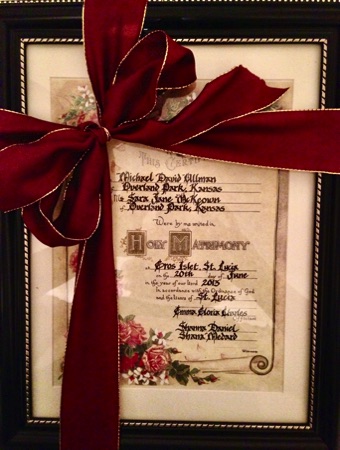 This Certif
Michael David Ullman
of Overland Park, Kansas
Sara Jane McKeown
of Overland Park, Kansas
Were by me united in
Holy Matrimony
at Gros Islet, St. Lucia
on the 20th day of June
in the year of our Lord 2013
In accordance with the Ordinance of God
and the laws of St. Lucia
Emma Gloria
Shanna Daniel
Shana Medard